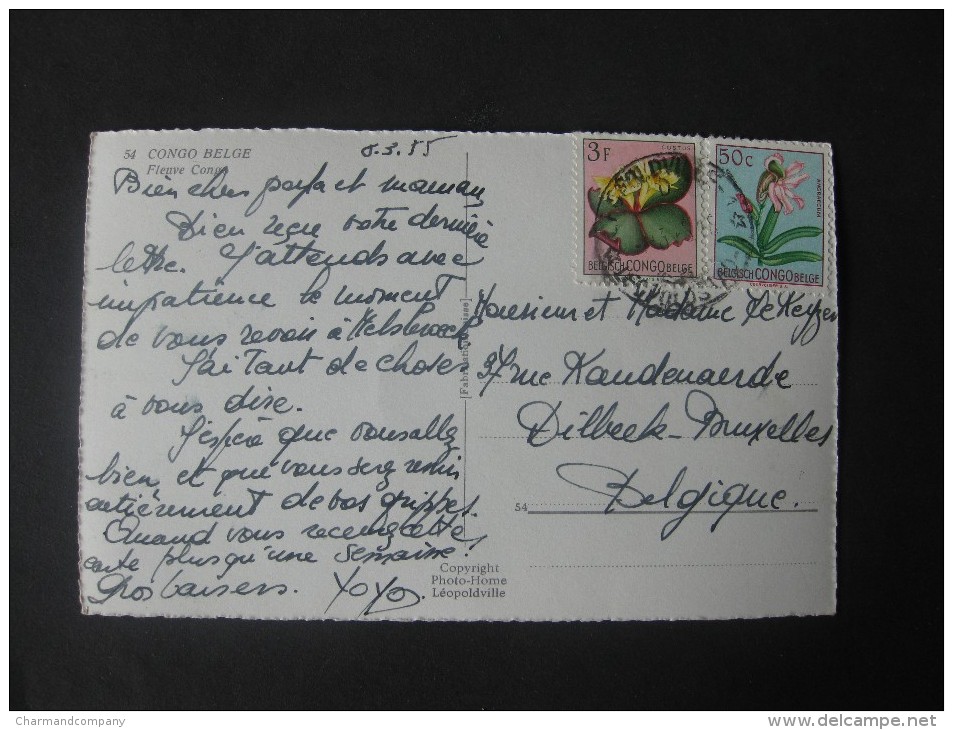 54 CONGO BELGE
Fleuve Congo
8.3.55
Bien chers papa et maman
Bien reçu votre dernière
lettre. J'attends avec
impatience le moment
de vous revoir à Melsbroeck
J'ai tant de choses
à vous dire.
J'espère que vous allez
bien et que vous serez remis
entièrement de vos grippes.
Quand vous recevrez cette
carte plus qu'une semaine!
Gros baisers. YoYo.
[Fabrication française]
Copyright
Photo-Home
Léopoldville
3F
COSTUS
BELGISCH CONGO BELGE
50c
ANGRAECUM
BELGISCH CONGO BELGE
Monsieur et Madame De Keyzer
rue Kaudenaerde
Dilbeek-Bruxelles
54
Belgique.
Charmandcompany
www.delcampe.net